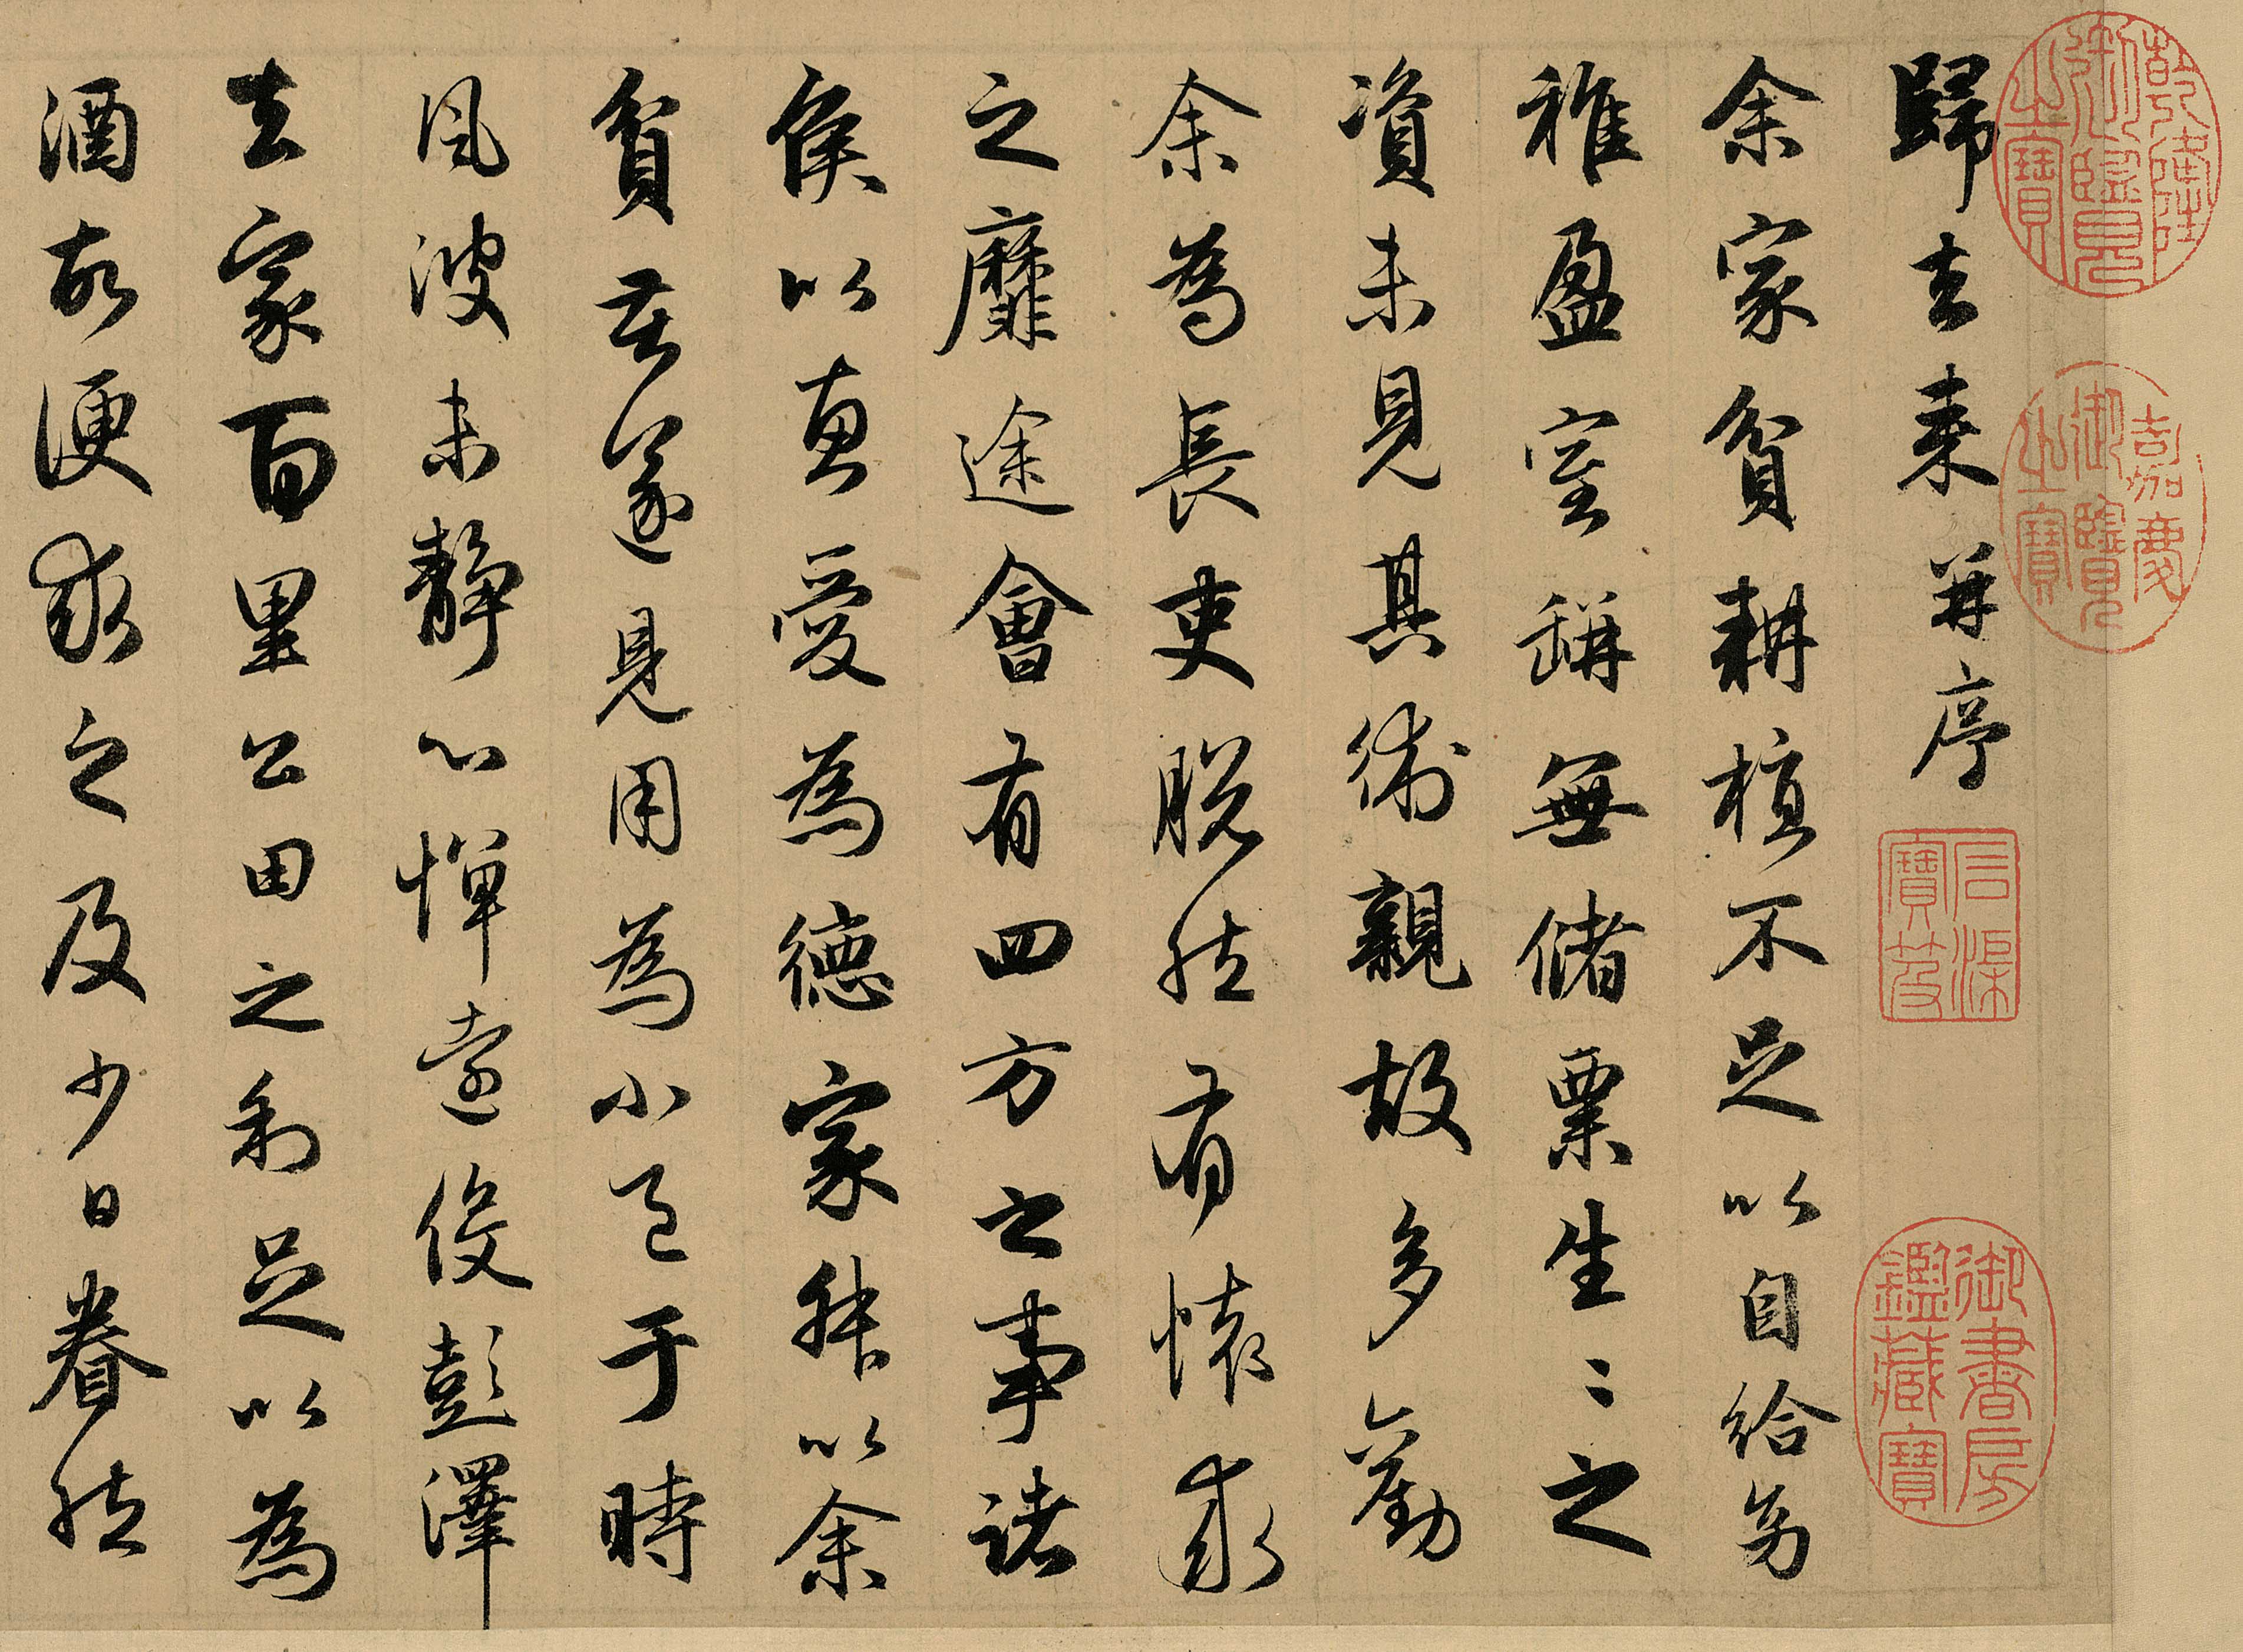 乾隆御覽之寶
嘉慶御覽之寶
石渠寶笈
御書房鑑藏寶
歸去來并序
余家貧耕植不足以自給幼
稚盈室缾無儲粟生〻之
資未見其術親故多勸
余為長吏脫然有懷求
之靡途會有四方之事諸
侯以惠愛為德家叔以余
貧苦遂見用為小邑于時
風波未靜心憚遠役彭澤
去家百里公田之利足以為
酒故便求之及少日眷然